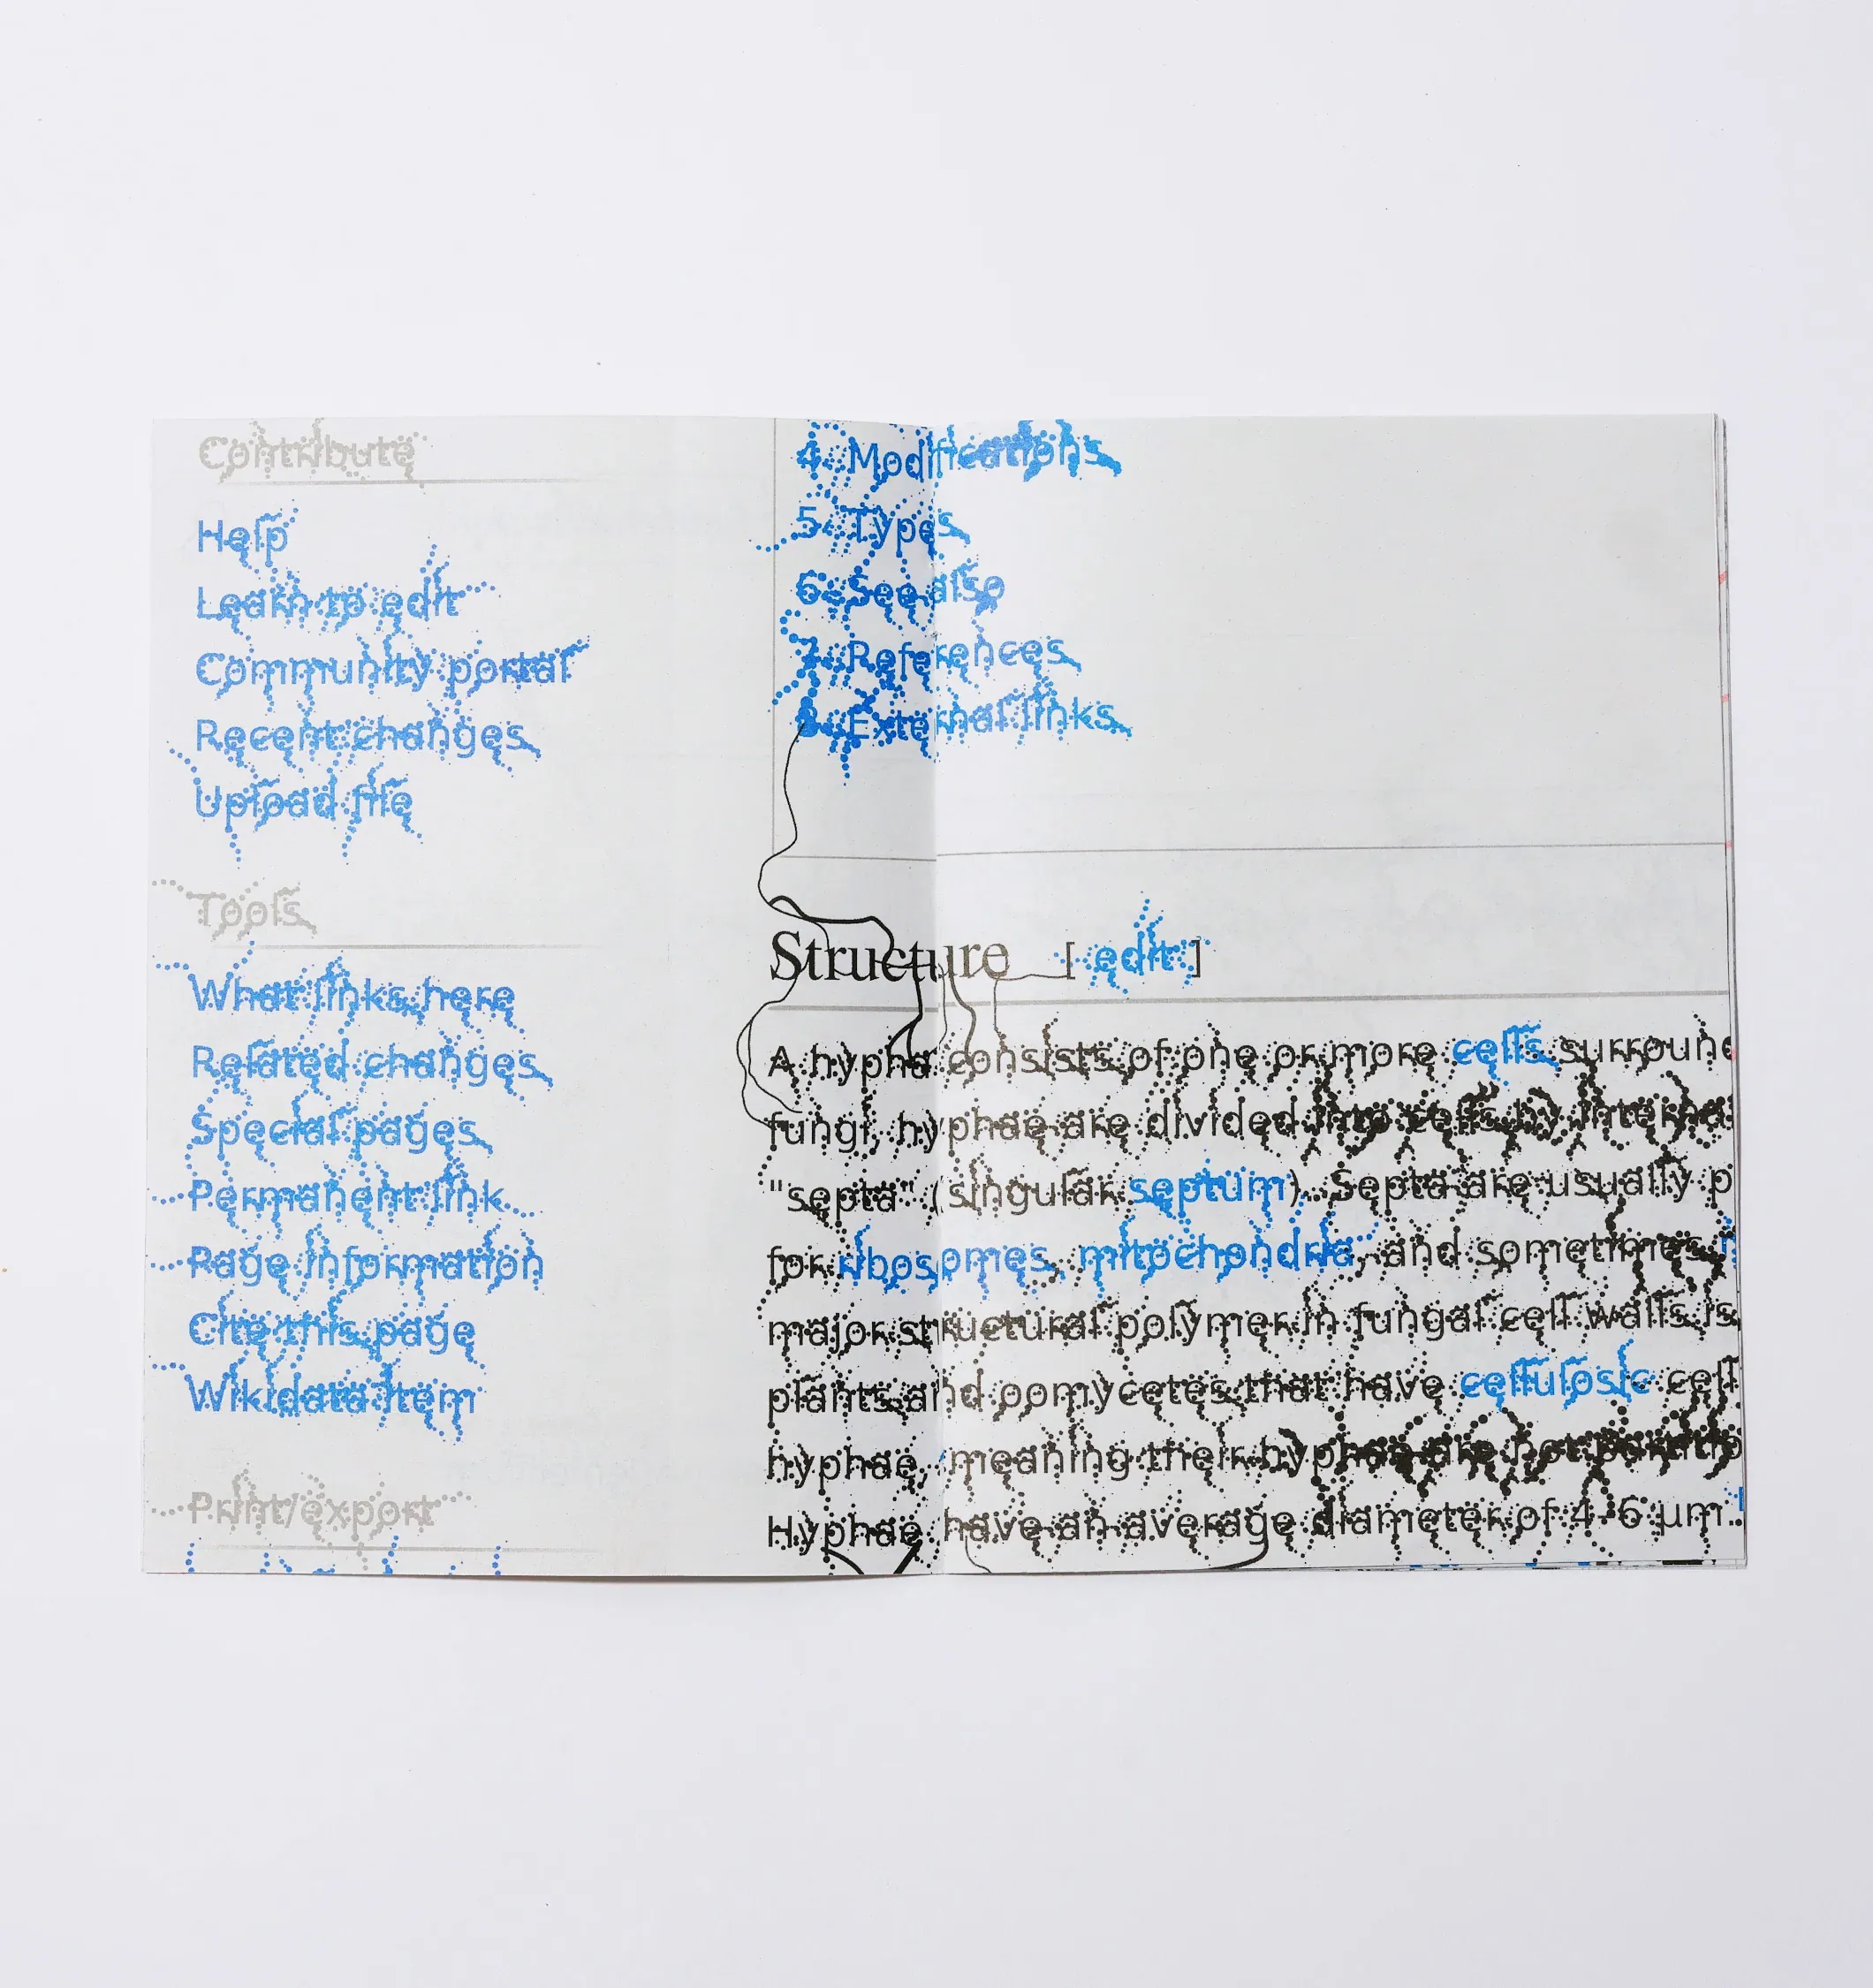 Contribute
Help
Learn to edit
Community portal
Recent changes
Upload file
Tools
What links here
Related changes
Special pages
Permanent link
Page information
Cite this page
Wikidata item
Print/export
4 Modifications
5 Types
6 See also
7 References
8 External links
Structure [ edit ]
A hypha consists of one or more cells surround
fungi, hyphae are divided into cells by internal
"septa" (singular septum). Septa are usually p
for ribosomes, mitochondria, and sometimes
major structural polymer in fungal cell walls is
plants and oomycetes that have cellulosic cell
hyphae, meaning their hyphae are not
Hyphae have an average diameter of 4–6 µm.